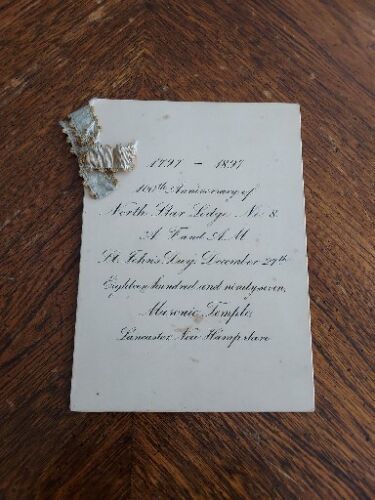 1797 - 1897
100th Anniversary of
North Star Lodge No. 8
A. F. and A. M.
St. John's Day, December 27th
Eighteen hundred and ninety-seven,
Masonic Temple,
Lancaster, New Hampshire